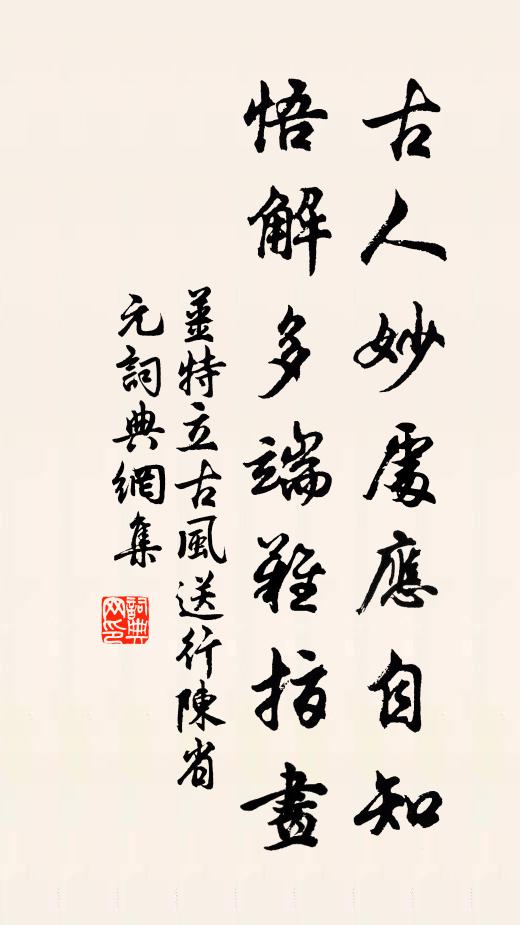 古人妙處應自知
悟解多端難指畫
薑特立古風送行陳省
元詞典網集
詞典
网印